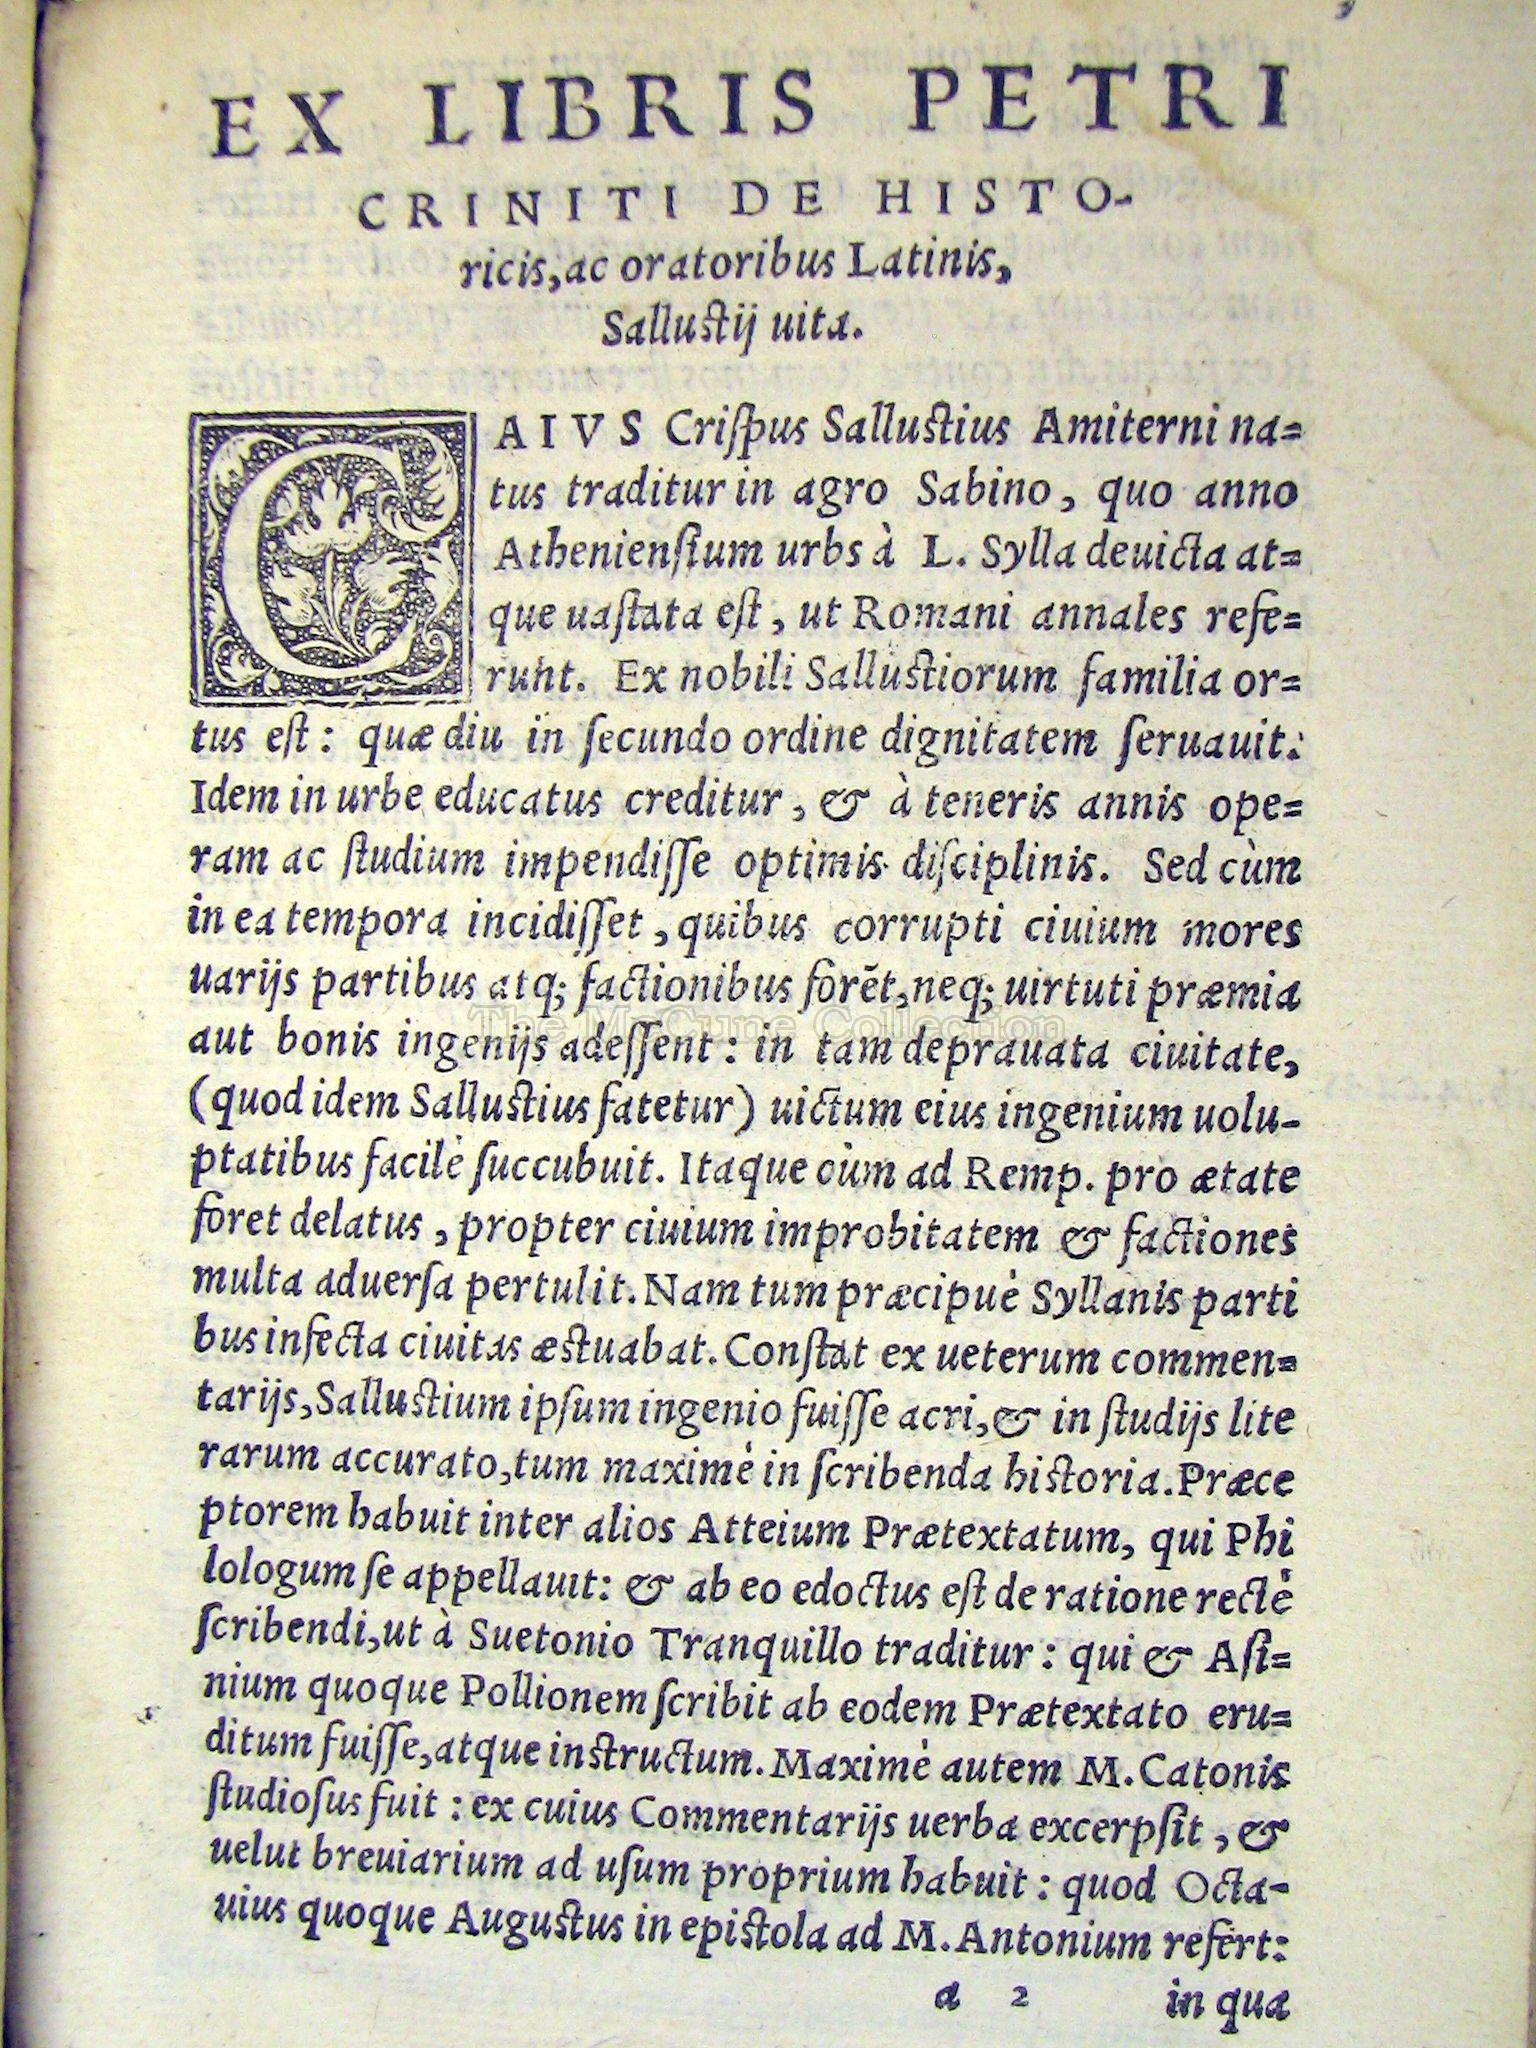 EX LIBRIS PETRI
CRINITI DE HISTO-
ricis, ac oratoribus Latinis,
Sallustij uita.
CAIVS Criſpus Sallustius Amiterni na=
tus traditur in agro Sabino, quo anno
Athenienſium urbs à L. Sylla deuicta at=
que uaſtata eſt, ut Romani annales refe=
runt. Ex nobili Sallustiorum familia or=
tus eſt: quæ diu in ſecundo ordine dignitatem ſeruauit:
Idem in urbe educatus creditur, & à teneris annis ope=
ram ac ſtudium impendiſſe optimis diſciplinis. Sed cùm
in ea tempora incidiſſet, quibus corrupti ciuium mores
uarijs partibus atq; factionibus forēt, neq; uirtuti præmia
aut bonis ingenijs adeſſent: in tam deprauata ciuitate,
(quod idem Sallustius fatetur) uictum eius ingenium uolu-
ptatibus facilè ſuccubuit. Itaque cùm ad Remp. pro ætate
foret delatus, propter ciuium improbitatem & factiones
multa aduerſa pertulit. Nam tum præcipuè Syllanis parti
bus infecta ciuitas æstuabat. Conſtat ex ueterum commen=
tarijs, Sallustium ipſum ingenio fuiſſe acri, & in ſtudijs lite
rarum accurato, tum maximè in ſcribenda historia. Præce
ptorem habuit inter alios Atteium Prætextatum, qui Phi
lologum ſe appellauit: & ab eo edoctus eſt de ratione rectè
ſcribendi, ut à Suetonio Tranquillo traditur: qui & Aſi=
nium quoque Pollionem ſcribit ab eodem Prætextato eru=
ditum fuiſſe, atque instructum. Maximè autem M. Catonis
ſtudioſus fuit: ex cuius Commentarijs uerba excerpſit, &
uelut breuiarium ad uſum proprium habuit: quod Octa-
uius quoque Augustus in epistola ad M. Antonium refert:
a 2 in qua
The McCune Collection